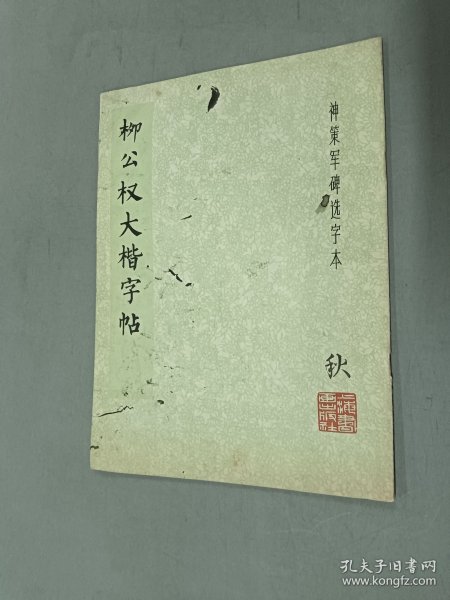 柳公权大楷字帖
神策军碑选字本
秋
上海书
画出版社
孔夫子旧书网
www.kongfz.com